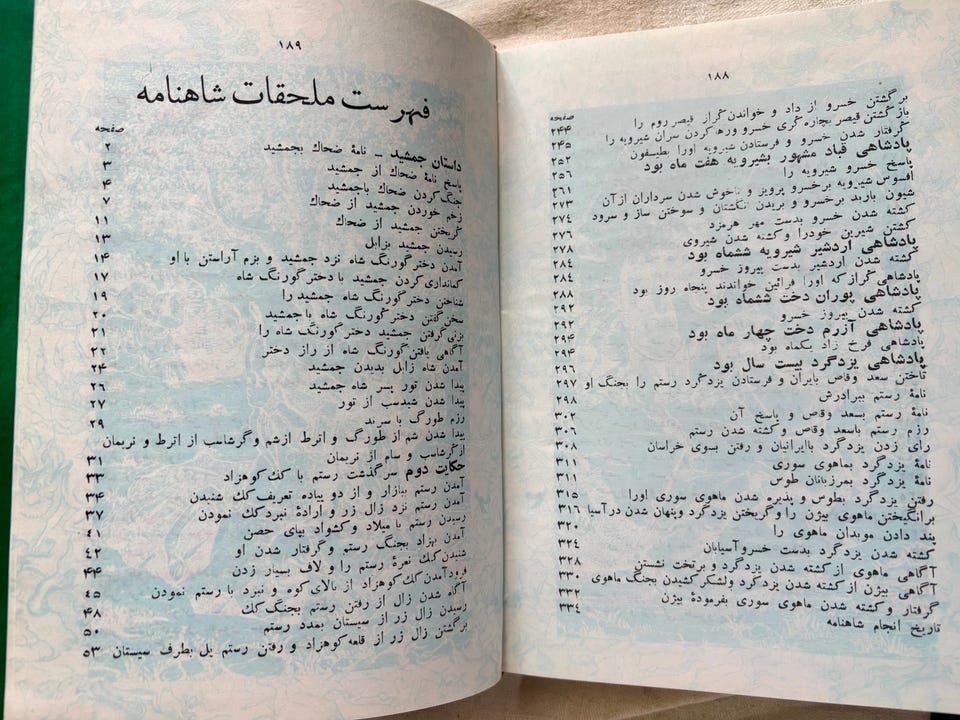 ۱۸۸
صفحه
برگشتن خسرو از داد و خواندن گراز قیصر روم را
بازگشتن قیصر بچاره گری خسرو ورها کردن سران شیرویه را ۲۴۴
گرفتار شدن خسرو و فرستادن شیرویه اورا بطیسفون ۲۴۵
پادشاهی قباد مشهور بشیرویه هفت ماه بود ۲۵۲
پاسخ خسرو شیرویه را ۲۵۶
افسوس شیرویه برخسرو پرویز و ناخوش شدن سرداران ازآن ۲۶۱
شیون باربد برخسرو و بریدن انگشتان و سوختن ساز و سرود ۲۷۳
کشته شدن خسرو بدست مهر هرمزد ۲۷۴
کشتن شیرین خودرا وکشته شدن شیروی ۲۷۶
پادشاهی اردشیر شیرویه ششماه بود ۲۷۸
کشته شدن اردشیر بدست پیروز خسرو ۲۸۴
پادشاهی گراز که اورا فرائین خواندند پنجاه روز بود ۲۸۴
پادشاهی پوران دخت ششماه بود ۲۸۸
کشته شدن پیروز خسرو ۲۹۲
پادشاهی آزرم دخت چهار ماه بود ۲۹۲
پادشاهی فرخ زاد یکماه بود ۲۹۴
پادشاهی یزدگرد بیست سال بود ۲۹۴
تاختن سعد وقاص بایران و فرستادن یزدگرد رستم را بجنگ او ۲۹۶
نامهٔ رستم ببرادرش ۲۹۷
نامهٔ رستم بسعد وقاص و پاسخ آن ۲۹۸
رزم رستم باسعد وقاص وکشته شدن رستم ۳۰۲
رای زدن یزدگرد باایرانیان و رفتن بسوی خراسان ۳۰۶
نامهٔ یزدگرد بماهوی سوری ۳۰۸
نامهٔ یزدگرد بمرزبانان طوس ۳۱۱
رفتن یزدگرد بطوس و پذیره شدن ماهوی سوری اورا ۳۱۱
برانگیختن ماهوی بیژن را وگریختن یزدگرد وپنهان شدن درآسیا ۳۱۵
پند دادن موبدان ماهوی را ۳۱۶
کشته شدن یزدگرد بدست خسروآسیابان ۳۲۰
آگاهی ماهوی ازکشته شدن یزدگرد و برتخت نشستن ۳۲۴
آگاهی بیژن ازکشته شدن یزدگرد ولشکرکشیدن بجنگ ماهوی ۳۲۸
گرفتار وکشته شدن ماهوی سوری بفرمودهٔ بیژن ۳۳۰
تاریخ انجام شاهنامه ۳۳۲
۳۳۴
۱۸۹
فهرست ملحقات شاهنامه
صفحه
داستان جمشید – نامهٔ ضحاک بجمشید ۲
پاسخ نامهٔ ضحاک از جمشید ۳
جنگ کردن ضحاک باجمشید ۴
زخم خوردن جمشید از ضحاک ۷
گریختن جمشید از ضحاک ۱۱
رسیدن جمشید بزابل ۱۳
آمدن دختر گورنگ شاه نزد جمشید و بزم آراستن با او ۱۴
کمانداری کردن جمشید با دختر گورنگ شاه ۱۷
شناختن دختر گورنگ شاه جمشید را ۱۹
سخن گفتن دختر گورنگ شاه با جمشید ۲۰
بزنی گرفتن جمشید دختر گورنگ شاه را ۲۱
آگاهی یافتن گورنگ شاه از راز دختر ۲۲
آمدن شاه زابل بدیدن جمشید ۲۴
پیدا شدن تور پسر شاه جمشید ۲۶
پیدا شدن شیدسب از تور ۲۷
رزم طورگ با سرند ۲۹
پیدا شدن شم از طورگ و اترط ازشم وگرشاسب از اترط و نریمان
ازگرشاسب و سام از نریمان ۳۱
حکایت دوم سرگذشت رستم با کک کوهزاد ۳۳
آمدن رستم ببازار و از دو پیاده تعریف کک شنیدن ۳۴
آمدن رستم نزد زال زر و ارادهٔ نبرد کک نمودن ۳۷
رسیدن رستم با میلاد و کشواد بپای حصن ۴۱
آمدن بهزاد بجنگ رستم و گرفتار شدن او ۴۲
شنیدن کک نعرهٔ رستم را و لاف بسیار زدن ۴۴
فرود آمدن کک کوهزاد از بالای کوه و نبرد با رستم نمودن
آگاه شدن زال از رفتن رستم بجنگ کک ۴۵
رسیدن زال زر از سیستان بمدد رستم ۴۸
برگشتن زال زر از قلعه کوهزاد و رفتن رستم یل بطرف سیستان ۵۰
۵۳